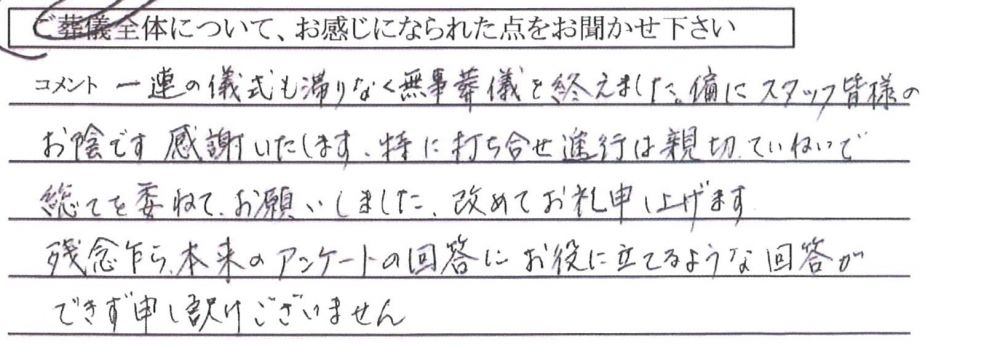 ご葬儀全体について、お感じになられた点をお聞かせ下さい
コメント 一連の儀式も滞りなく無事葬儀を終えました。偏にスタッフ皆様の
お陰です 感謝いたします、特に打ち合せ進行は親切、ていねいで
総てを委ねて、お願いしました、改めてお礼申し上げます
残念乍ら、本来のアンケートの回答にお役に立てるような回答が
できず申し訳けございません